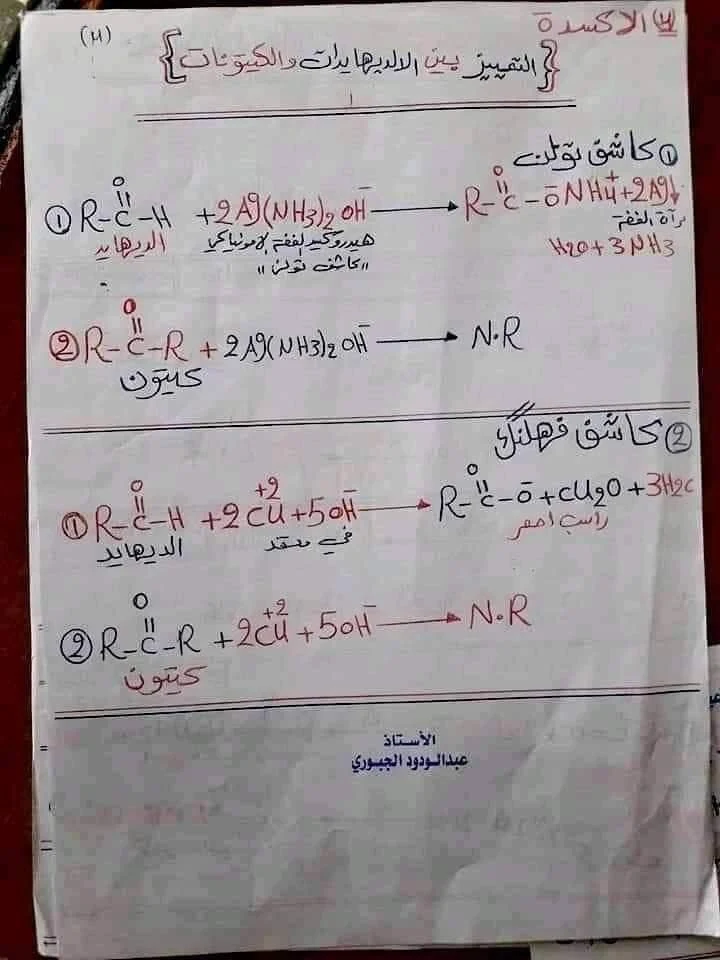 الاكسدة
(٣)
{التمييز بين الالديهايدات والكيتونات}
① كاشف تولن
① R-C(=O)-H + 2Ag(NH3)2OH⁻ ⟶ R-C(=O)-O⁻NH4⁺ + 2Ag↓
الديهايد
هيدروكسيد الفضة الامونياكي
مرآة الفضة
"كاشف تولن"
H2O + 3NH3
② R-C(=O)-R + 2Ag(NH3)2OH⁻ ⟶ N.R
كيتون
② كاشف فهلنك
① R-C(=O)-H + 2Cu⁺² + 5OH⁻ ⟶ R-C(=O)-O⁻ + Cu2O + 3H2O
الديهايد
في معقد
راسب احمر
② R-C(=O)-R + 2Cu⁺² + 5OH⁻ ⟶ N.R
كيتون
الأستاذ
عبدالودود الجبوري